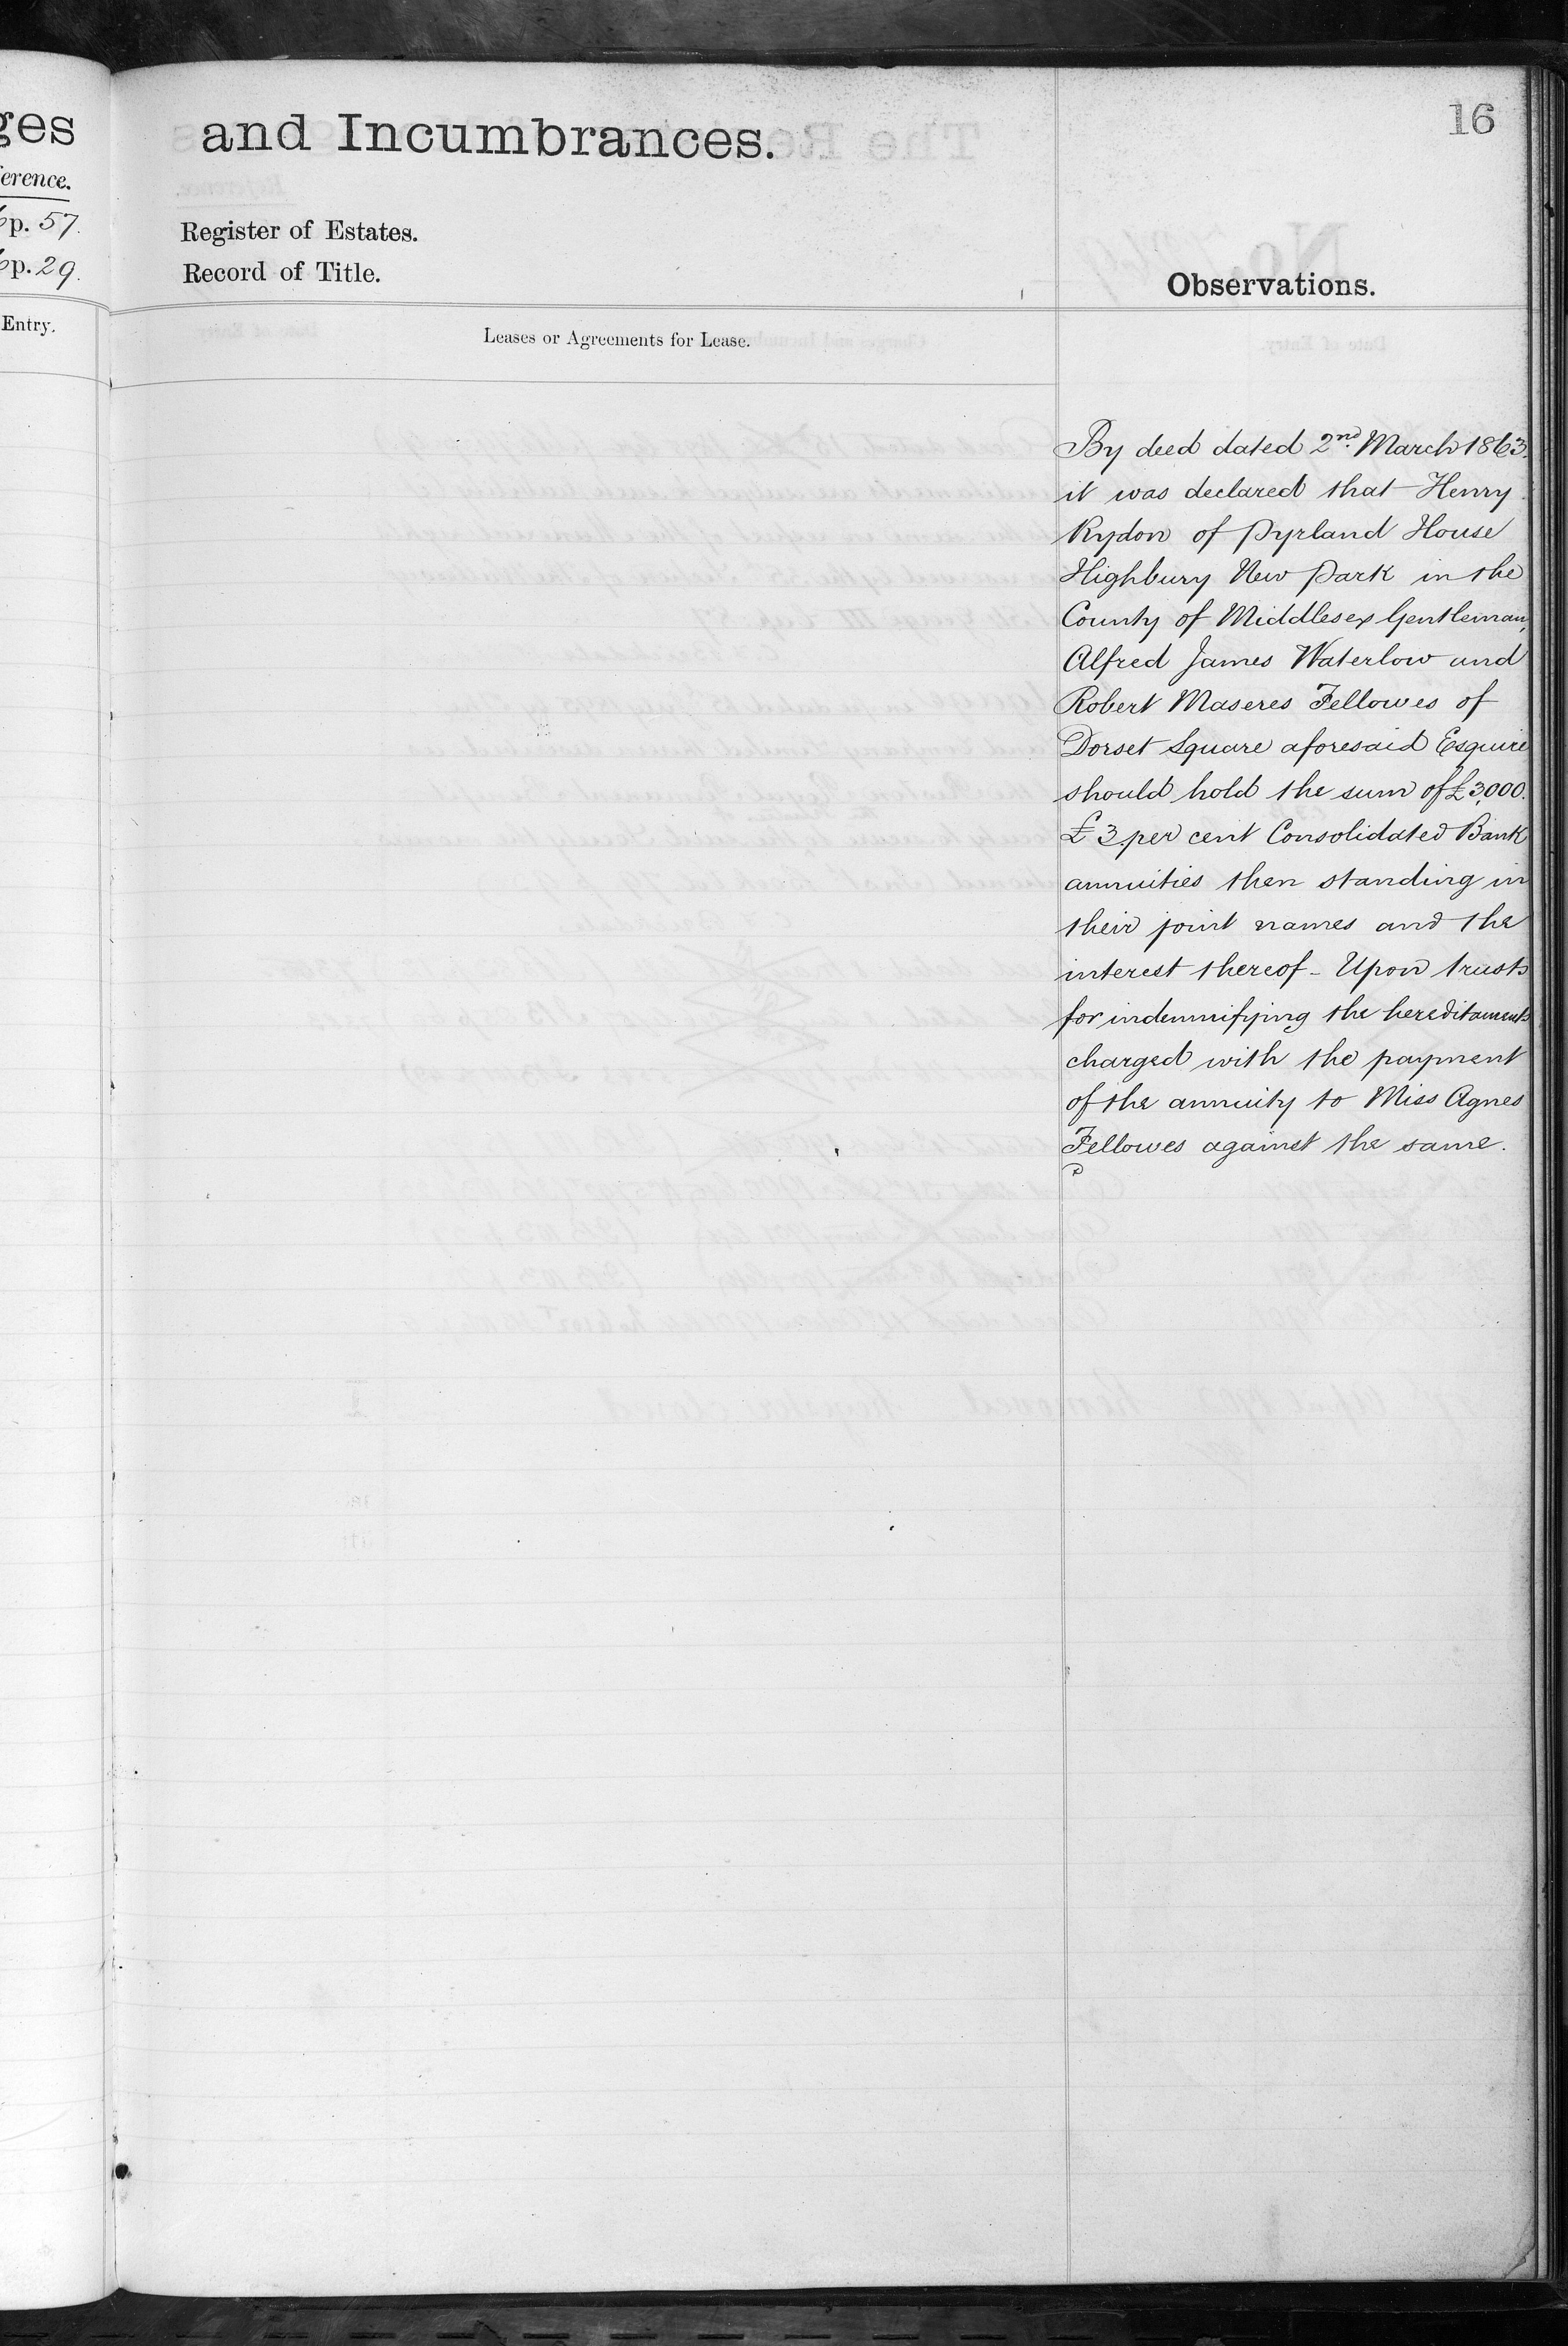 16
ges
and Incumbrances.
erence.
p. 57.
Register of Estates.
p. 29.
Record of Title.
Observations.
Entry.
Leases or Agreements for Lease.
By deed dated 2nd. March 1863.
it was declared that Henry
Rydon of Pyrland House
Highbury New Park in the
County of Middlesex Gentleman,
Alfred James Waterlow and
Robert Maseres Fellowes of
Dorset Square aforesaid Esquire
should hold the sum of £3,000.
£3 per cent Consolidated Bank
annuities then standing in
their joint names and the
interest thereof - Upon trusts
for indemnifying the hereditaments
charged with the payment
of the annuity to Miss Agnes
Fellowes against the same.